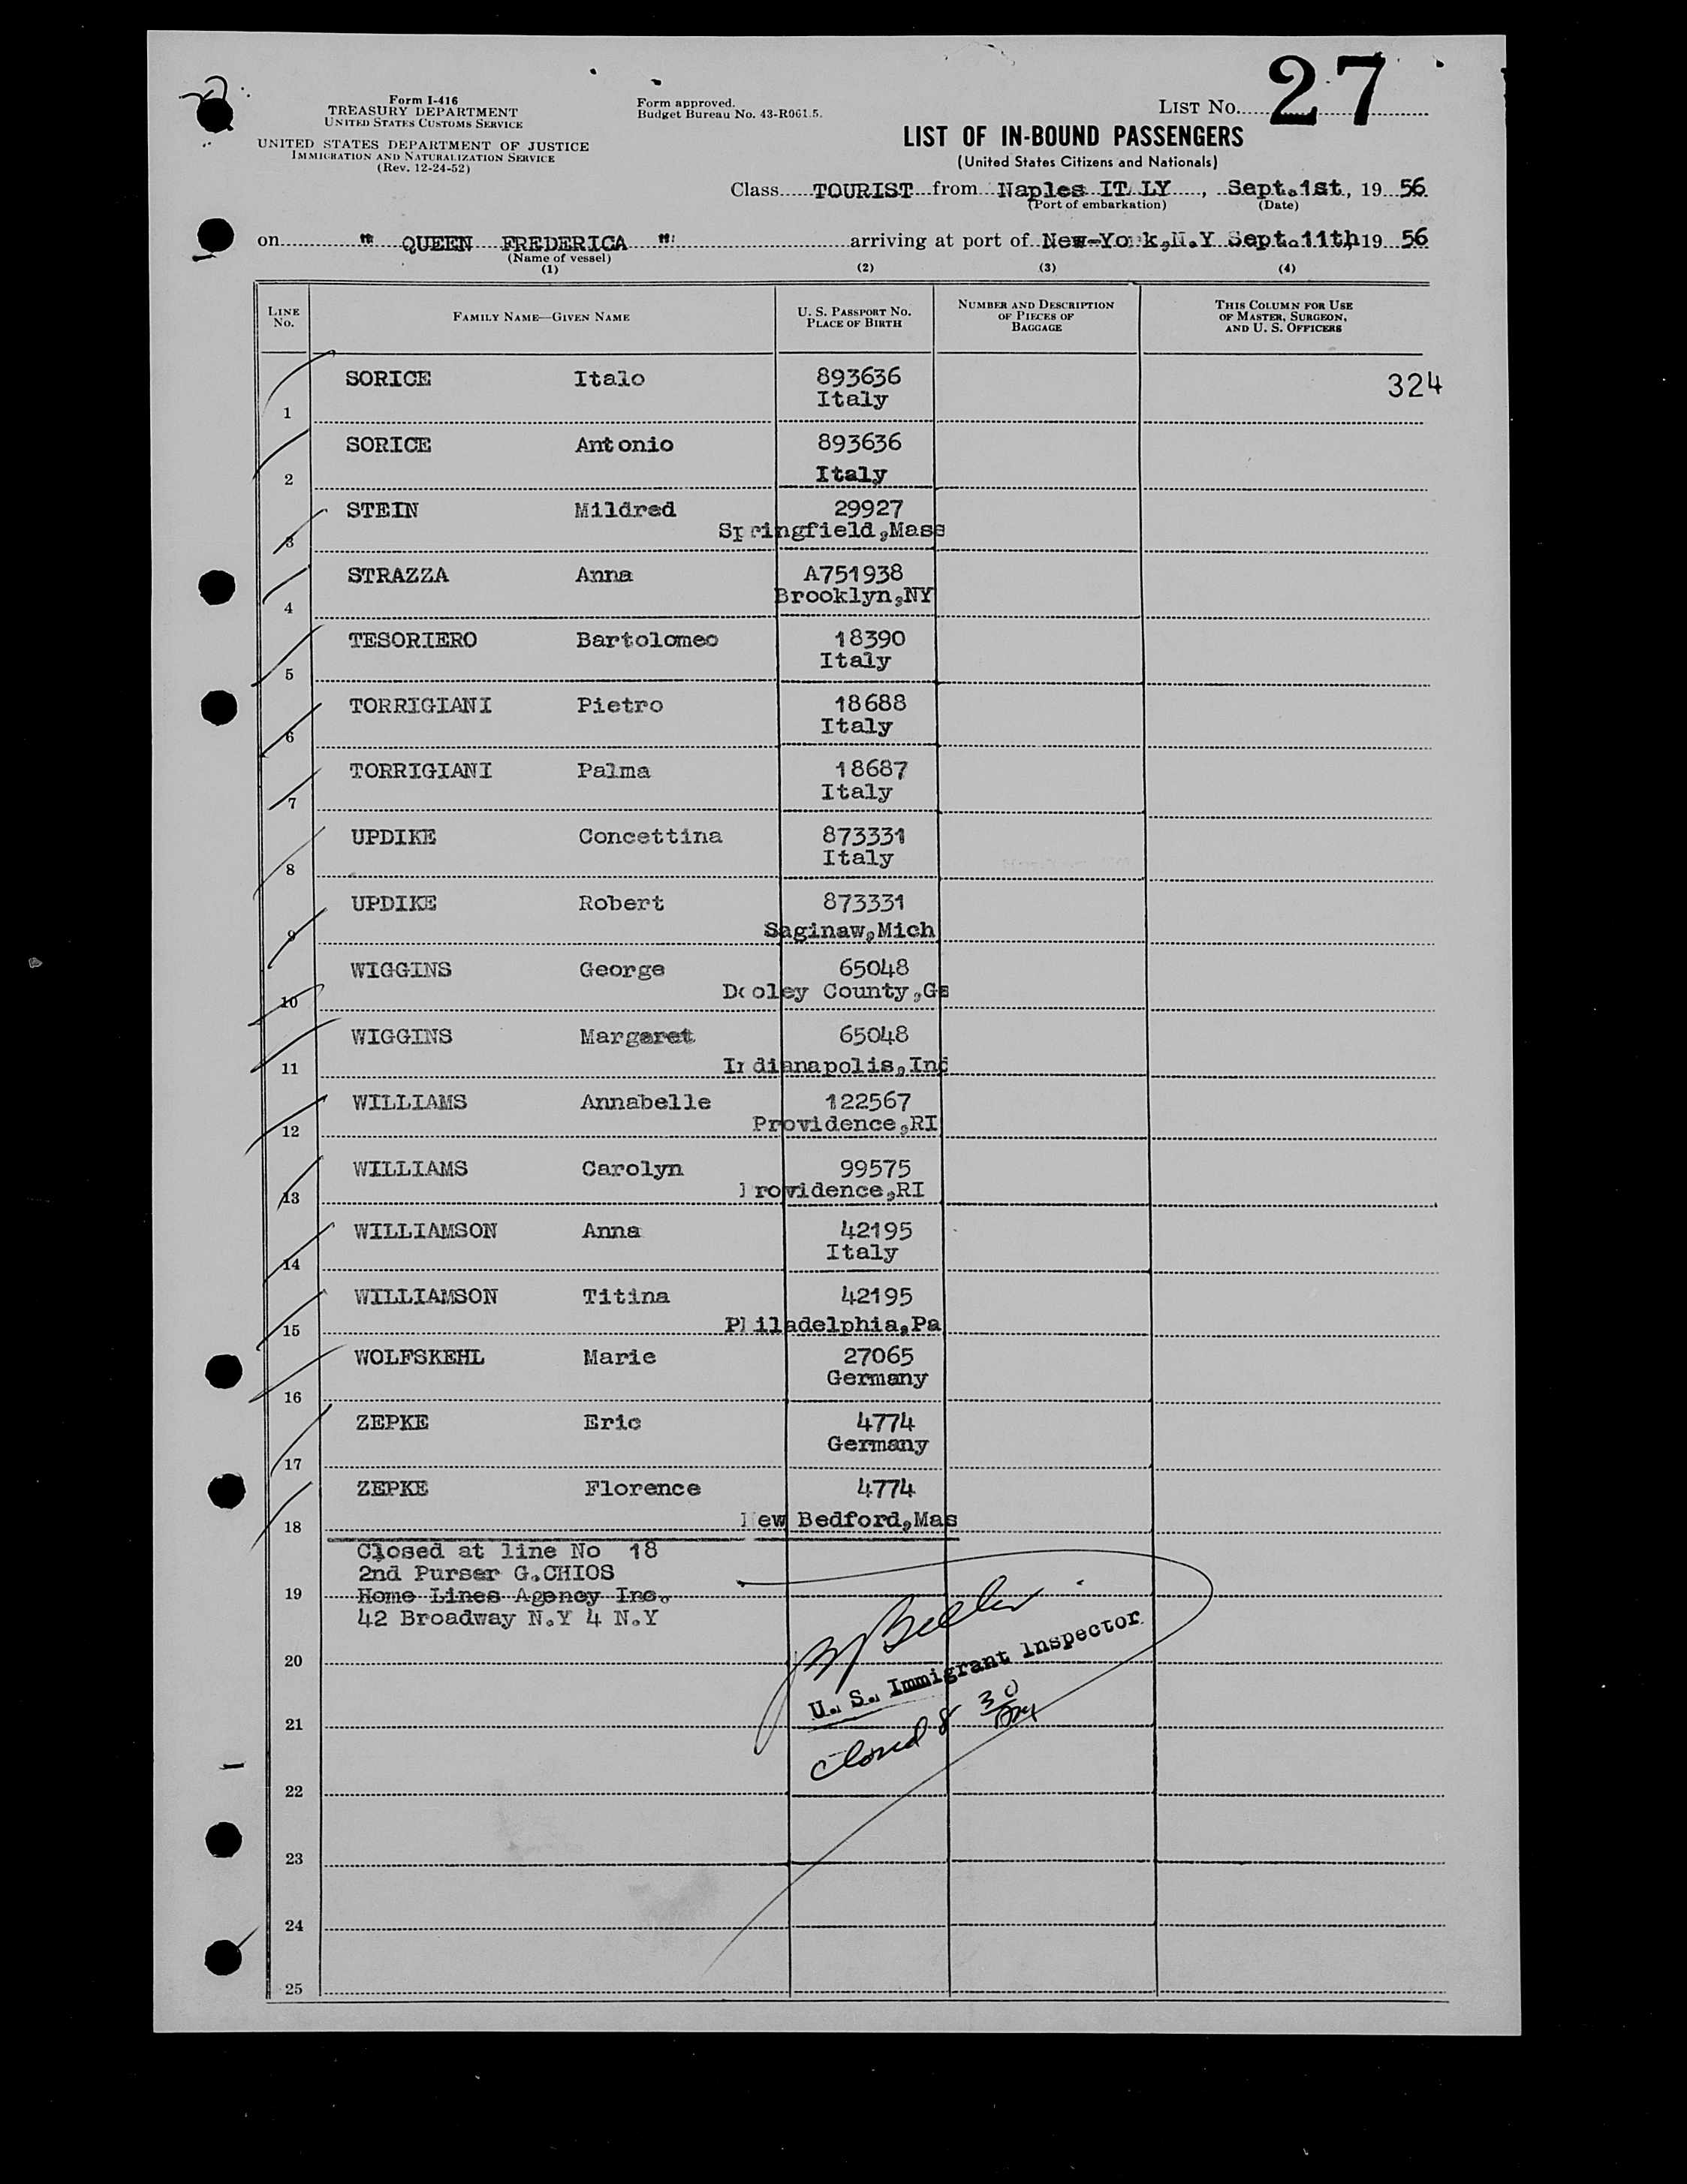 Form I-416
TREASURY DEPARTMENT
UNITED STATES CUSTOMS SERVICE
UNITED STATES DEPARTMENT OF JUSTICE
IMMIGRATION AND NATURALIZATION SERVICE
(Rev. 12-24-52)
Form approved.
Budget Bureau No. 43-R061.5.
LIST No. 27
LIST OF IN-BOUND PASSENGERS
(United States Citizens and Nationals)
Class TOURIST from Naples IT LY, Sept.1st, 19 56
(Port of embarkation) (Date)
on " QUEEN FREDERICA " arriving at port of New-York,N.Y Sept.11th 19 56
(Name of vessel)
(1) (2) (3) (4)
LINE No. FAMILY NAME—GIVEN NAME U. S. PASSPORT NO. PLACE OF BIRTH NUMBER AND DESCRIPTION OF PIECES OF BAGGAGE THIS COLUMN FOR USE OF MASTER, SURGEON, AND U. S. OFFICERS
SORICE Italo 893636 324
1 Italy
SORICE Antonio 893636
2 Italy
STEIN Mildred 29927
3 Springfield,Mass
STRAZZA Anna A751938
4 Brooklyn,NY
TESORIERO Bartolomeo 18390
5 Italy
TORRIGIANI Pietro 18688
6 Italy
TORRIGIANI Palma 18687
7 Italy
UPDIKE Concettina 873331
8 Italy
UPDIKE Robert 873331
9 Saginaw,Mich
WIGGINS George 65048
10 Dooley County,Ga
WIGGINS Margaret 65048
11 Indianapolis,Ind
WILLIAMS Annabelle 122567
12 Providence,RI
WILLIAMS Carolyn 99575
13 Providence,RI
WILLIAMSON Anna 42195
14 Italy
WILLIAMSON Titina 42195
15 Philadelphia,Pa
WOLFSKEHL Marie 27065
16 Germany
ZEPKE Eric 4774
17 Germany
ZEPKE Florence 4774
18 New Bedford,Mas
Closed at line No 18
2nd Purser G.CHIOS
19 Home Lines Agency Inc.
42 Broadway N.Y 4 N.Y
20
U. S. Immigrant Inspector
21
closed 8 30
22
23
24
25